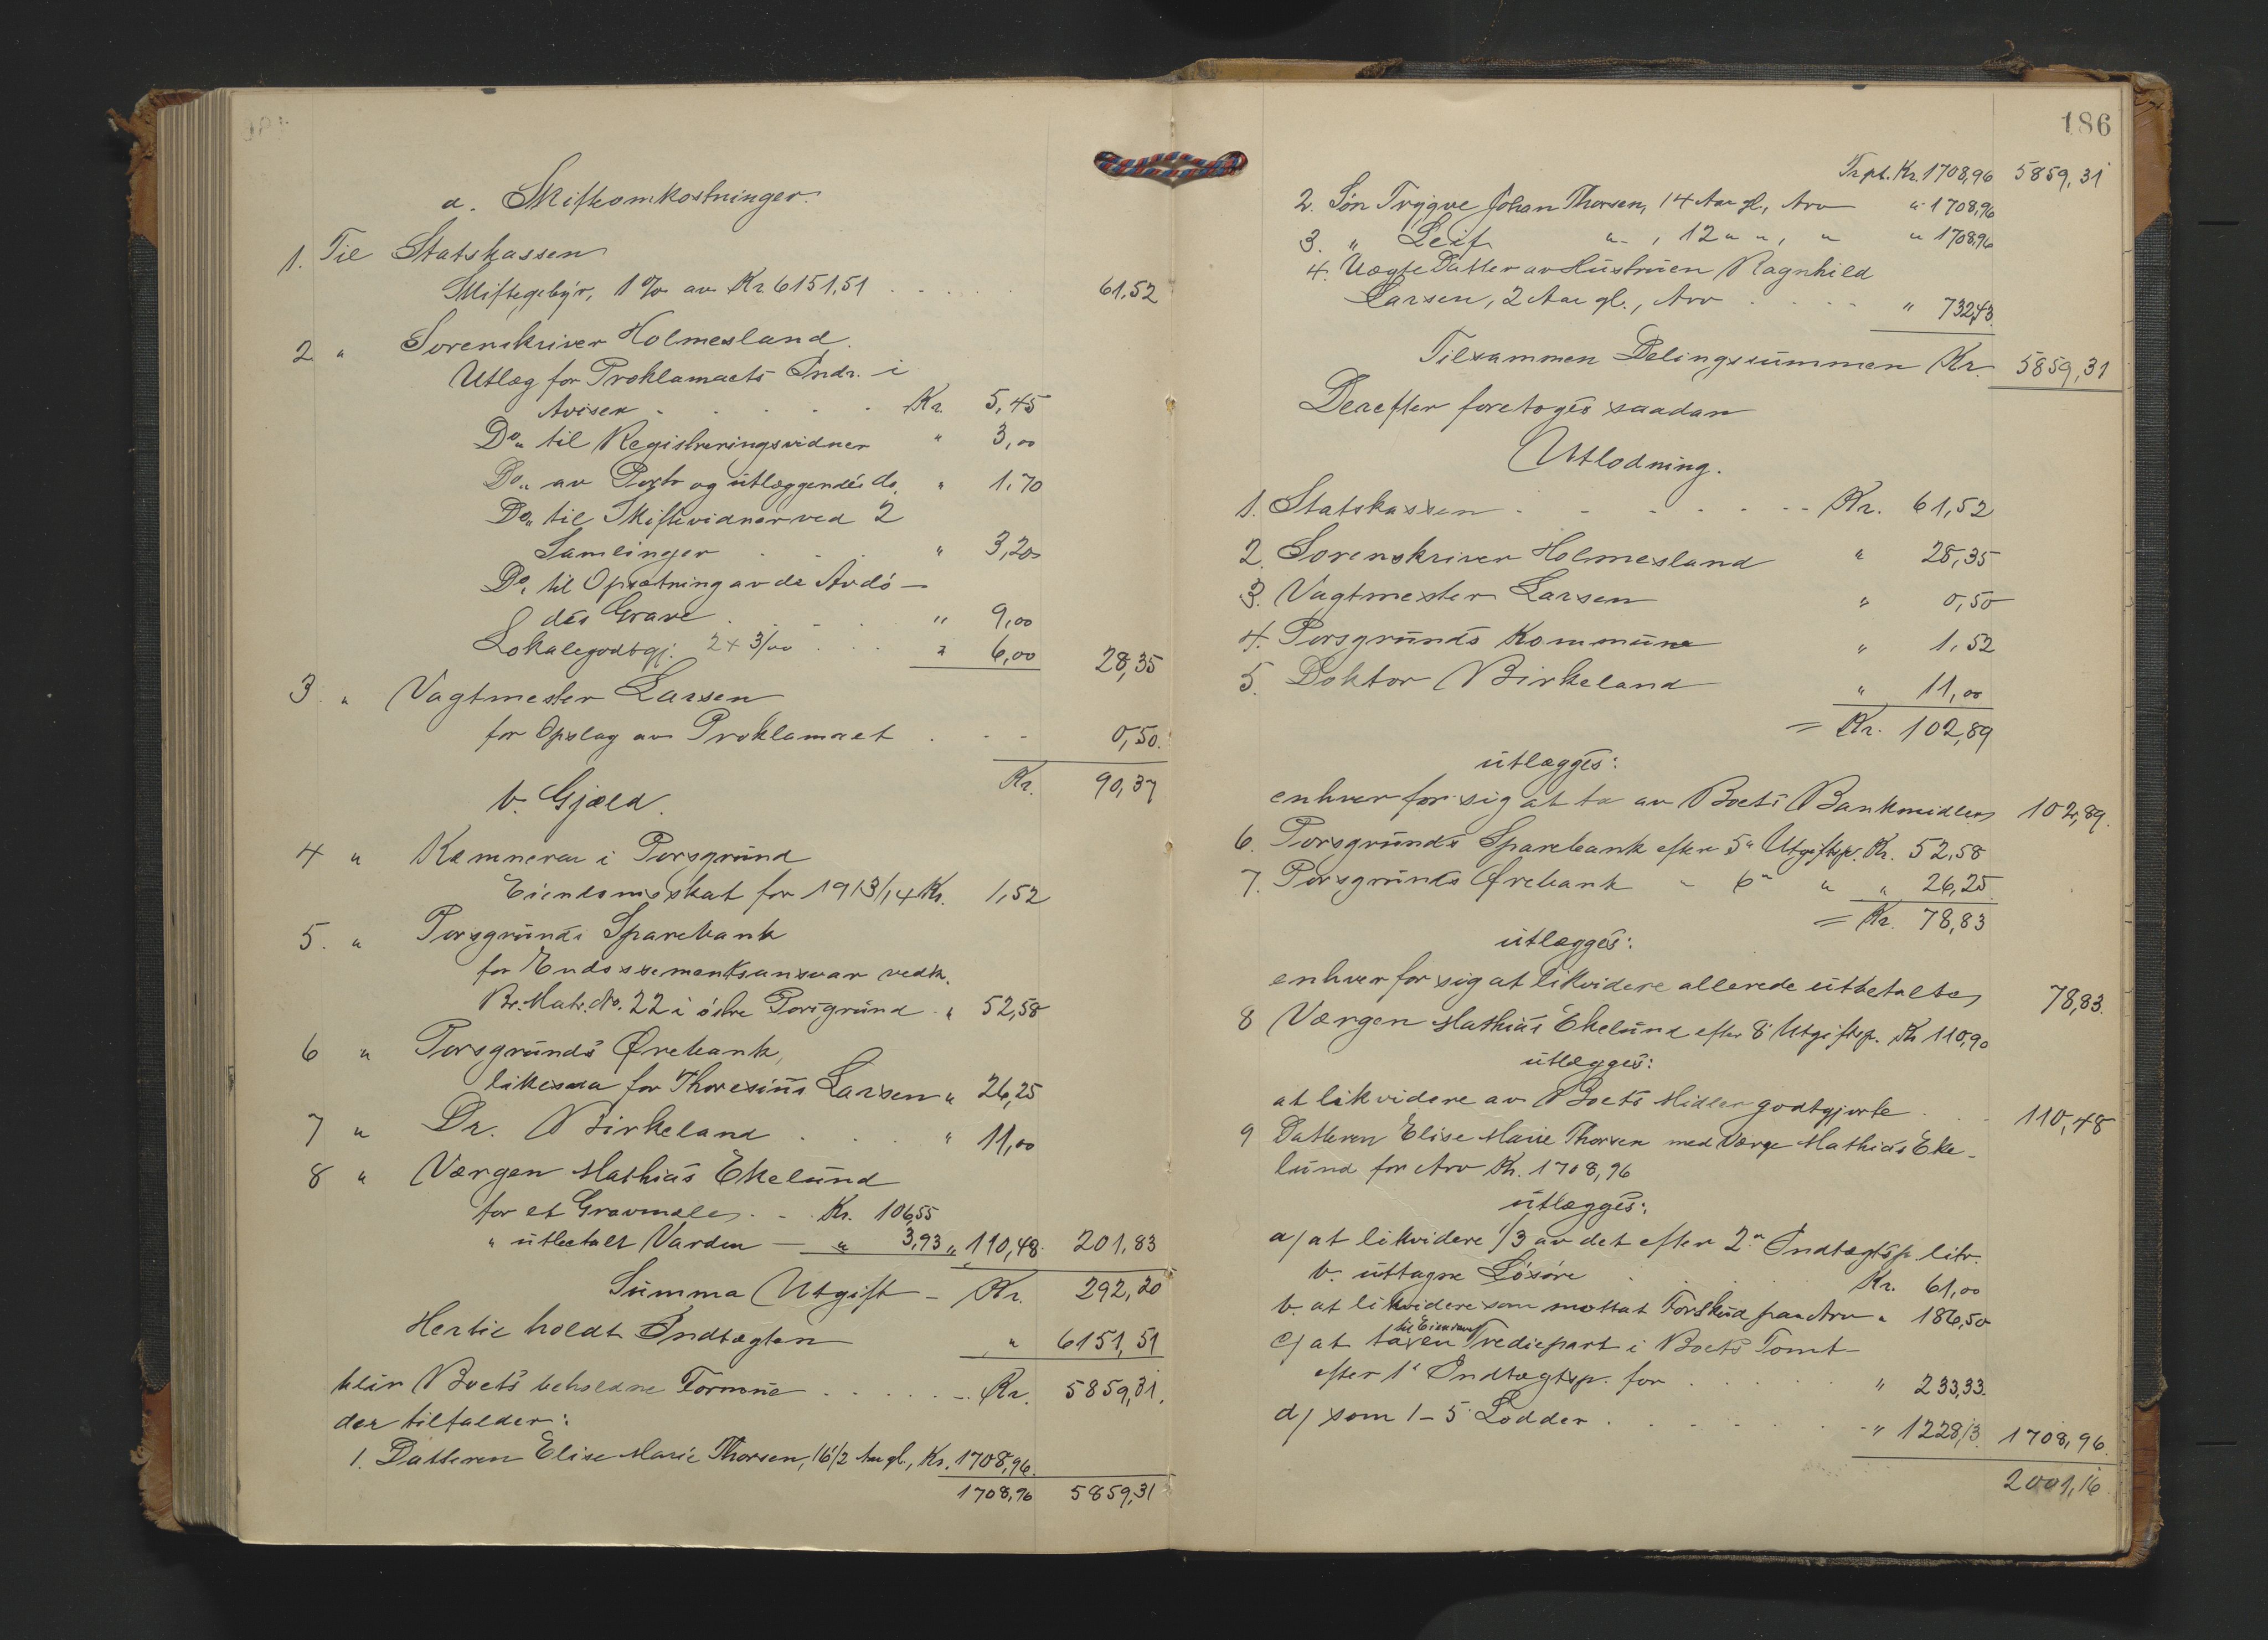 a. Skifteomkostninger.
1. Til Statskassen
Skiftegebyr, 1 % av Kr. 6151,51 . . . . . 61,52
2 " Sorenskriver Holmesland.
Utlæg for Proklamaets Indr. i
Avisen . . . . . . Kr. 5,45
Do. til Registreringsvidner " 3,00
Do. av Porto og utlæggendes do. " 1,70
Do. til Skiftevidner ved 2
Samlinger . . . " 3,20
Do. til Opsætning av de Avdø-
des Grave . . . . " 9,00
Lokalegodtgj. 2 + 3/00 . . . " 6,00 28,35
3. " Vagtmester Larsen
for Opslag av Proklamaet . - - 0,50.
Kr. 90,37
b. Gjæld.
4 " Kæmneren i Porsgrund
Eiendomsskat for 1913/14 Kr. 1,52
5. " Porsgrunds Sparebank
for Endossementsansvar vedk.
Br. Matr. No. 22 i østre Porsgrund . " 52,58
6 " Porsgrunds Ørebank,
likesaa for Thoresius Larsen " 26,25
7 " Dr. Birkeland . . . " 11,00
8 " Værgen Mathias Ekelund
for et Gravmæle . - . Kr. 106,55
" utbetalt Varden — " 3,93 " 110,48. 201,83
Summa Utgift - Kr. 292,20
Hertil holdt Indtægten " 6151,51
blir Boets beholdne Formue . . . . . - Kr. 5859,31.
der tilfalder:
1. Datteren Elise Marie Thorsen, 16 1/2 Aar gl., Kr. 1708,96.
1708,96 5859,31
186
Trpt. Kr. 1708,96 5859,31
2. Søn Trygve Johan Thorsen, 14 Aar gl., Arv " 1708,96
3. " Leif " - , 12 " ", " " 1708,96
4. Uægte Datter av Hustruen Ragnhild
Larsen, 2 Aar gl., Arv . . . . " 732,43.
Tilsammen Delingssummen Kr. 5859,31
Derefter foretoges saadan
Utlodning.
1. Statskassen - - - - - - - Kr. 61,52
2. Sorenskriver Holmesland " 28,35
3. Vagtmester Larsen " 0,50
4. Porsgrunds Kommune " 1,52
5. Doktor Birkeland " 11,00
= Kr. 102,89
utlægges:
enhver for sig at ta av Boets Bankmidler 102,89.
6. Porsgrunds Sparebank efter 5" Utgiftsp. Kr. 52,58
7. Porsgrunds Ørebank - 6" " " 26,25.
= Kr. 78,83
utlægges:
enhver for sig at likvidere allerede utbetalte 78,83.
8 Værgen Mathias Ekelund efter 8' Utgiftsp. Kr 110,90
utlægges:
at likvidere av Boets Midler godtgjorte . . . 110,48
9 Datteren Elise Marie Thorsen med Værge Mathias Eke-
lund for Arv Kr. 1708,96
utlægges:
a) at likvidere 1/3 av det efter 2" Indtægtsp. litr.
b. uttagne Løsøre . . . . . Kr. 61,00
b. at likvidere som mottat Forskud paa Arv " 186,50
til Eiendom
c) at ta en Trediepart i Boets Tomt
efter 1' Indtægtsp. for . . . . . " 233,33.
d) som 1-5 Lodder . . . . . . - " 1228,13. 1708,96.
2001,16.